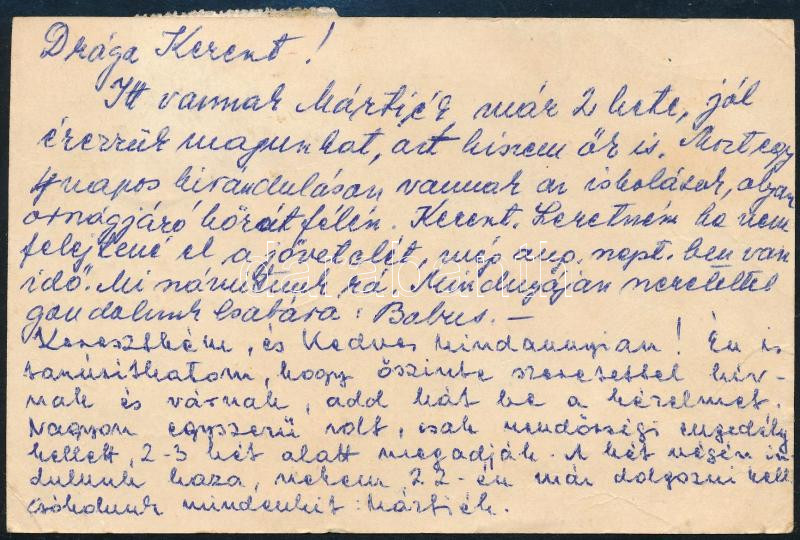 Drága Kereszt!
Itt vannak Mártiék, már 2 hete, jól
érezzük magunkat, azt hiszem ők is. Most egy
4 napos kiránduláson vannak az iskolások, olyan
országjáró körút félén. Kereszt. Szeretném ha nem
felejtené el a jövetelét, még aug. szept. ben van
idő. Mi számítunk rá. Mindnyáján szeretettel
gondolunk Csabára: Babus. —
Keresztkém, és Kedves Mindannyian! Én is
tanúsíthatom, hogy őszinte szeretettel hív-
nak és várnak, add hát be a kérelmet.
Nagyon egyszerű volt, csak rendőrségi engedély
kellett, 2-3 hét alatt megadják. A hét végén in-
dulunk haza, nekem 22-én már dolgozni kell
csókolunk mindenkit: Mártiék.
darabanth